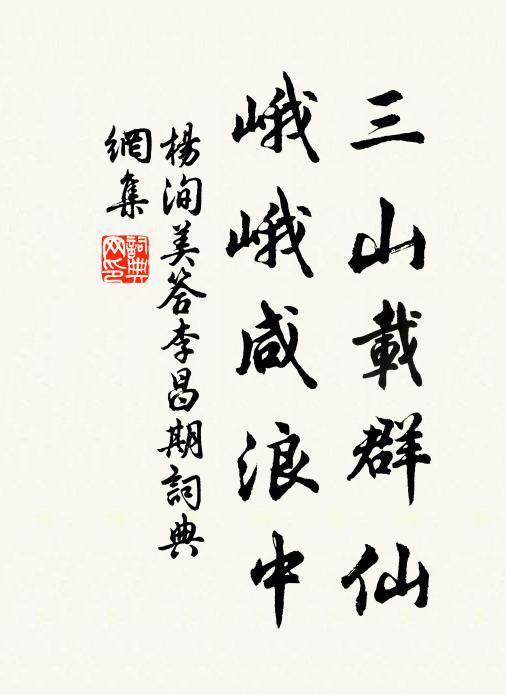 三山載群仙
峨峨咸浪中
楊洵美答李昌期詞典
網集
詞典
网印